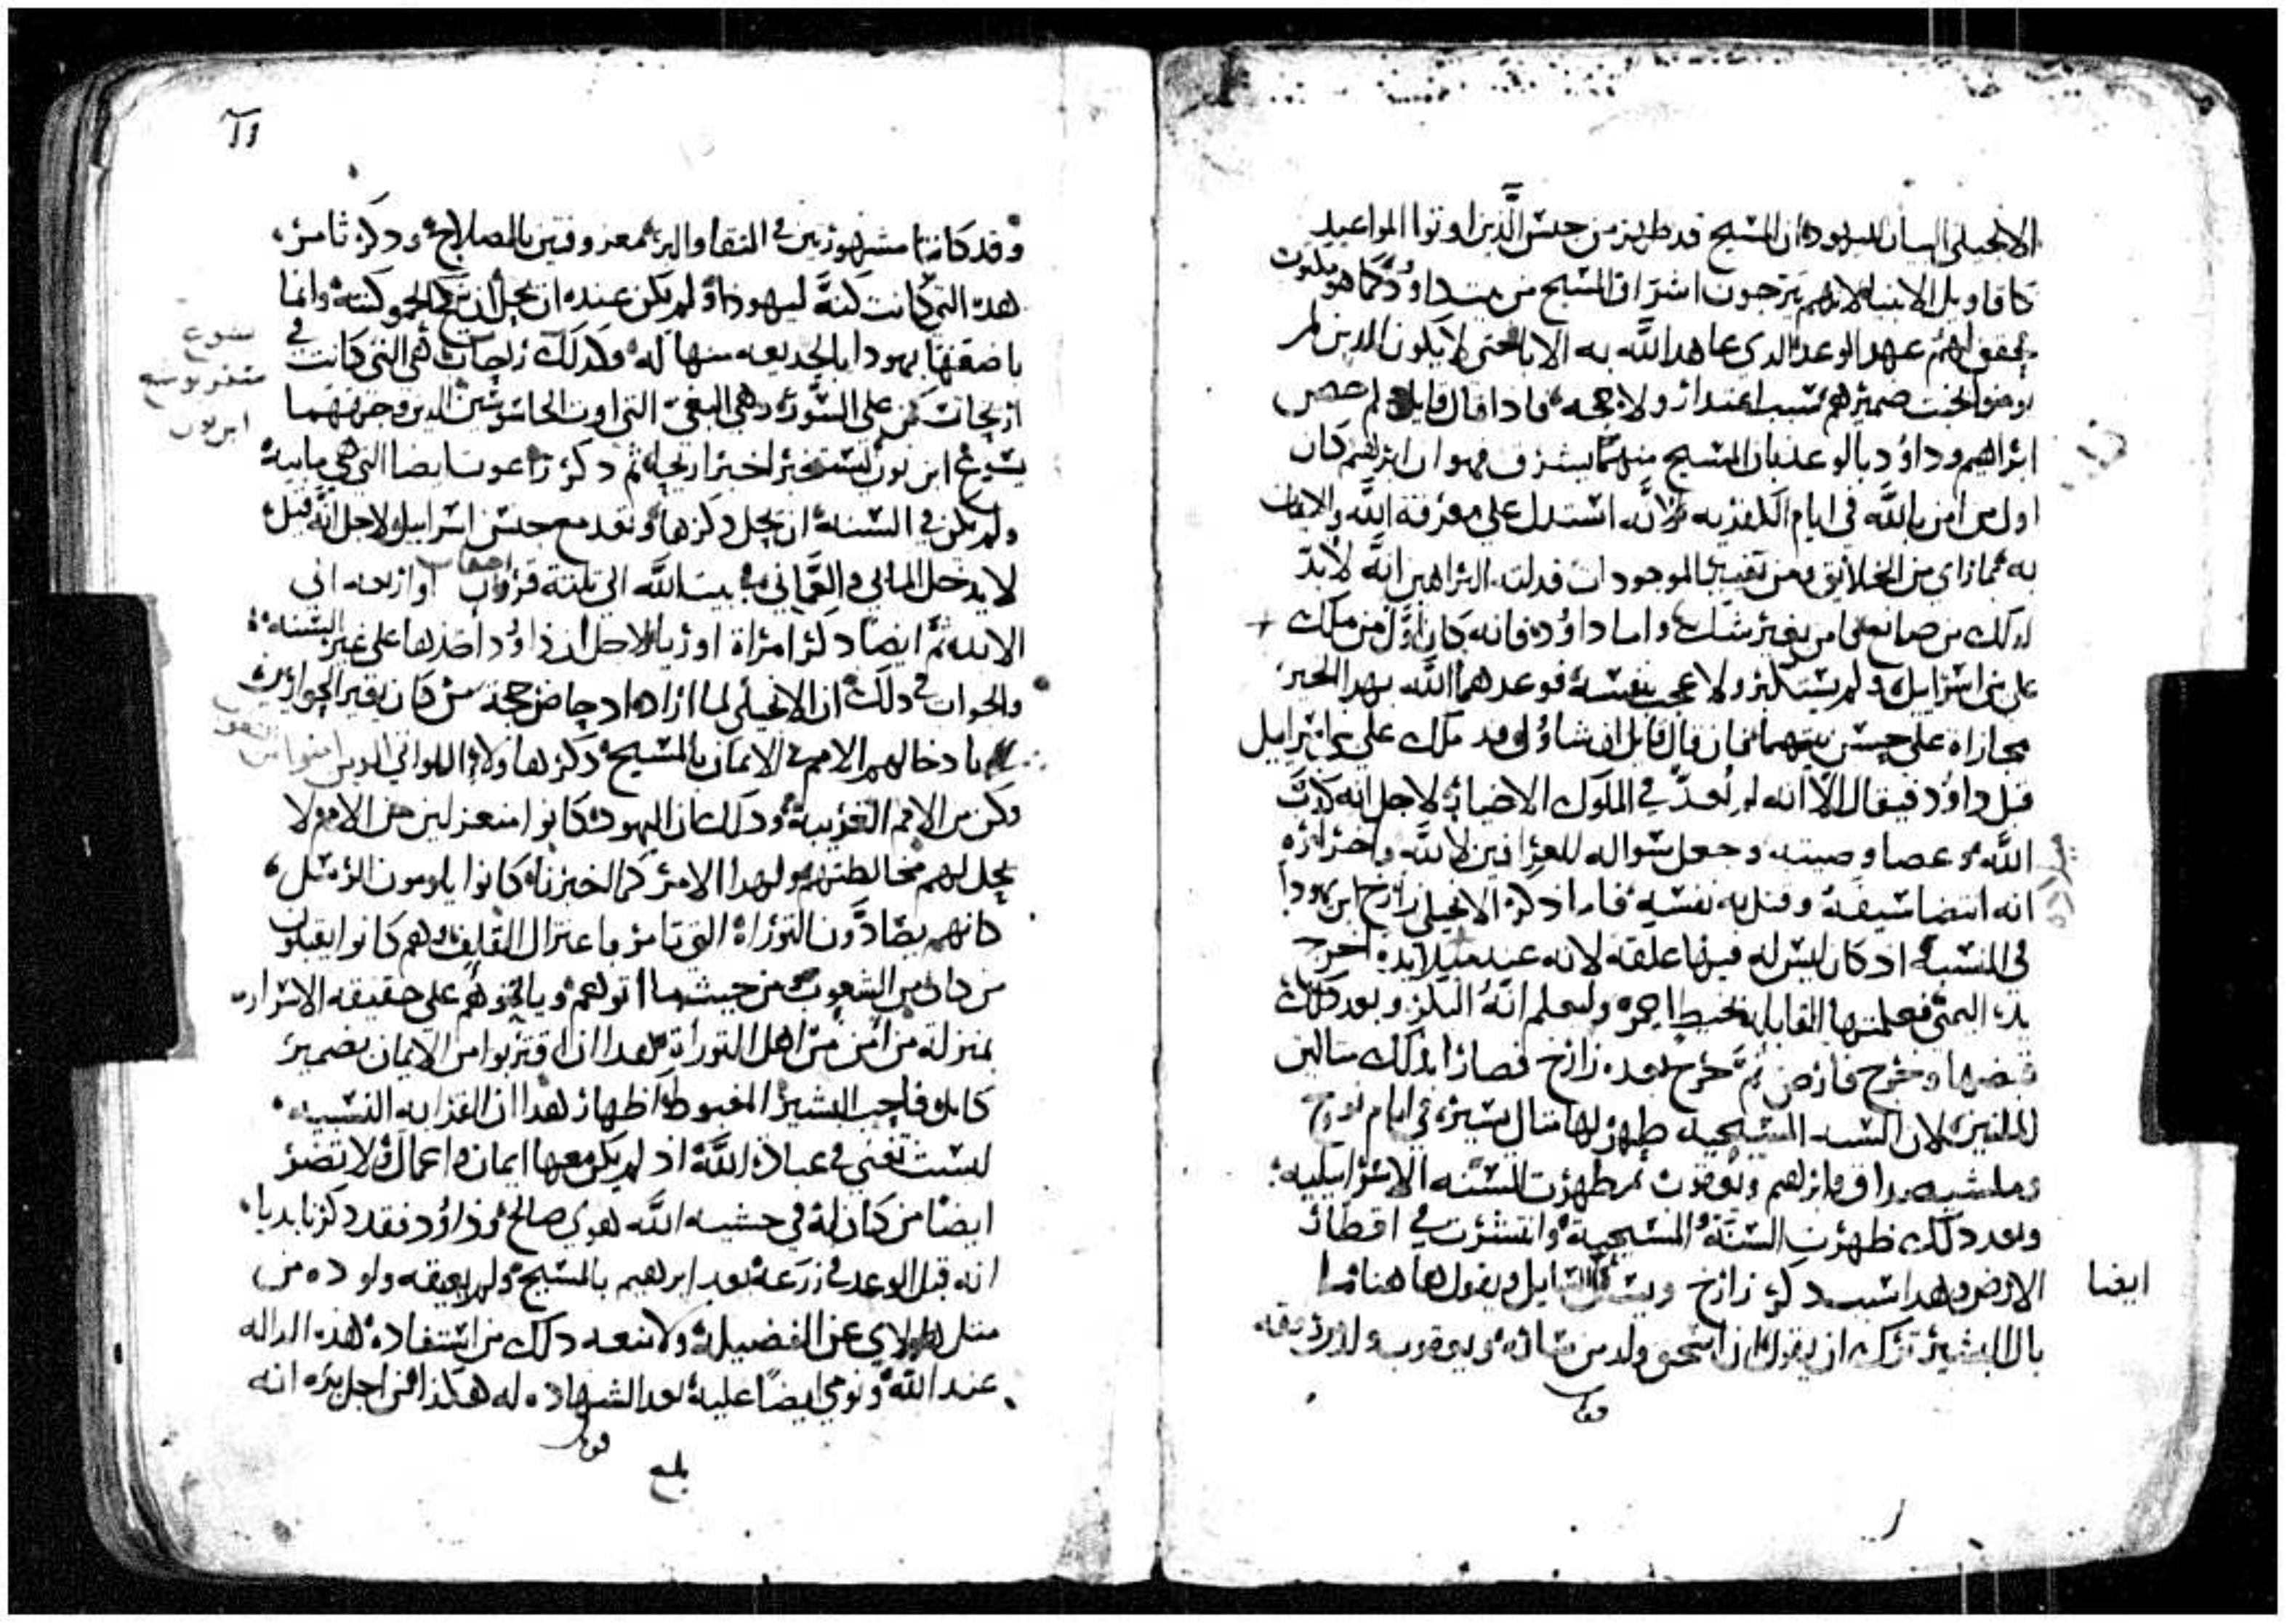 الانجيلي البيان لليهود ان المسيح قد ظهر من جنس الذين اوتوا المواعيد
كاقاويل الانبيا لانهم يترجون اشراق المسيح من بيت داوُد كما هو مكتوب
يحقق لهم عهد الوعد الدي عاهد الله به الابا حتى لا يكون للدين لم
يومنوا لخبث ضميرهم سبب اعتدار ولا حجه فادا قال قايل لم خص
ابراهيم وداوُد بالوعد بان المسيح منهما يشرف فهو ان ابرهيم كان
اول من امن بالله في ايام الكفريه لانه استدل على معرفة الله والايمان
به مما راى من الخلايق ومن تغيير الموجودات فدلته البراهين انه لا بدّ
لدلك من صانع فامن بغير شك واما داوُد فانه كان اوّل من ملك
على بني اسراييل ولم يستكبر ولا عجب بنفسه فوعدهما الله بهدا الخبر
مجازاة على حسن نيتهما فان قال قايل ان شاوُل قد ملك على بني اسراييل
قبل داوُد فيقال الا انه لم يُعدّ في الملوك الاخيار لاجل انه كدب
الله وعصا وصيته وجعل سواله للعرافين لا لله واخر امره
انه انتضا سيفه وقتل به نفسه فاما ادكر الانجيلي زارح ابن يهودا
في النسبه اد كان ليس له فيها علقه لانه عند ميلاده اخرج
يده اليمنى فعلمتها القابله بخيط احمر وليعلم انه البكر وبعد دلك
قبضها وخرج فارص ثم خرج بعده زارح فصارا بدلك مثالين
للملتين لان السنه المسيحيه ظهر لها مثال يسير في ايام نوح
وملشيصداق وابرهيم ويعقوب ثم ظهرت السنه الاسراييليه
وبعد دلك ظهرت السنّة المسيحية وانتشرت في اقطار
الارض وهدا سبب دكر زارح ويسال السايل ويقول هاهنا
ايضا
بال البشير ترك ان يقول ان اسحق ولد من ساره ويعقوب ولد من رفقه
وقد كانتا مشهورتين في التقا والبر معروفتين بالصلاح ودكر ثامر
هده التي كانت كنّة ليهودا ولم يكن عنده ان يحل ان يتزوج الحمو كنته وانما
باضعها يهودا بالخديعه منها له وكدلك راحاب هي التي كانت في
اريحا تكمن على السور وهي البغي التي اوت الجاسوسين الدين وجههما
يشوع ابن نون ليستخبر اخبار اريحا ثم دكر راعوت ايضا التي هي مابية
ولم يكن في السنه ان يحل دكرها وتعد مع جنس اسراييل لاجل انه قيل
لا يدخل المابي والعمّاني في بيت الله الى تلتة قرون او اربعه الى
احقاب
الابد ثم ايضًا دكر امراة اوريا لاجل ان داوُد اخدها على غير السنه
والجواب في دلك ان الانجيلي لما اراد ادحاض حجة من كان يعير الحواريين
بادخالهم الامم في الايمان بالمسيح دكر هاولاء اللواتي
وكن من الامم الغريبة ودلك ان اليهود كانوا منعزلين من الامم ولا
يحل لهم مخالطتهم ولهدا الامر كما اخبرناه كانوا يلومون الرسل
كانهم يضادّون التوراة التي تامر باعتزال القلف وهم كانوا يقبلون
من كان من الشعوب من حيثما اتوا هم وياتمنوهم على حقيقه الاسرار
بمنزله من امن من اهل التوراة بعد ان اقتربوا من الايمان بضمير
كامل فاحب البشير المغبوط اظهار هدا ان القرابه النسبيه
ليست تغني في عبادة الله اد لم يكن معها ايمان واعمال ولا تضر
ايضًا من كان له في خشيه الله هوى صالح وداوُد فقد دكرنا بديا
انه قبل الوعد في زرعه بعد ابرهيم بالمسيح ولم يعيقه ولوده من
مثل هاولاي عن الفضيلة ولا منعه دلك من استفادة هده الداله
عند الله ونومي ايضًا عليه بعد الشهاده له هكذا من اجل بره انه
بلغ